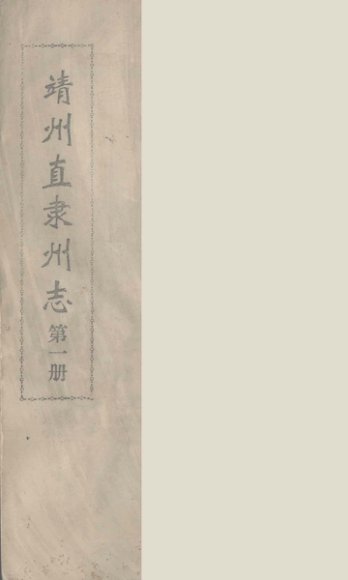 靖州直隶州志 第一册